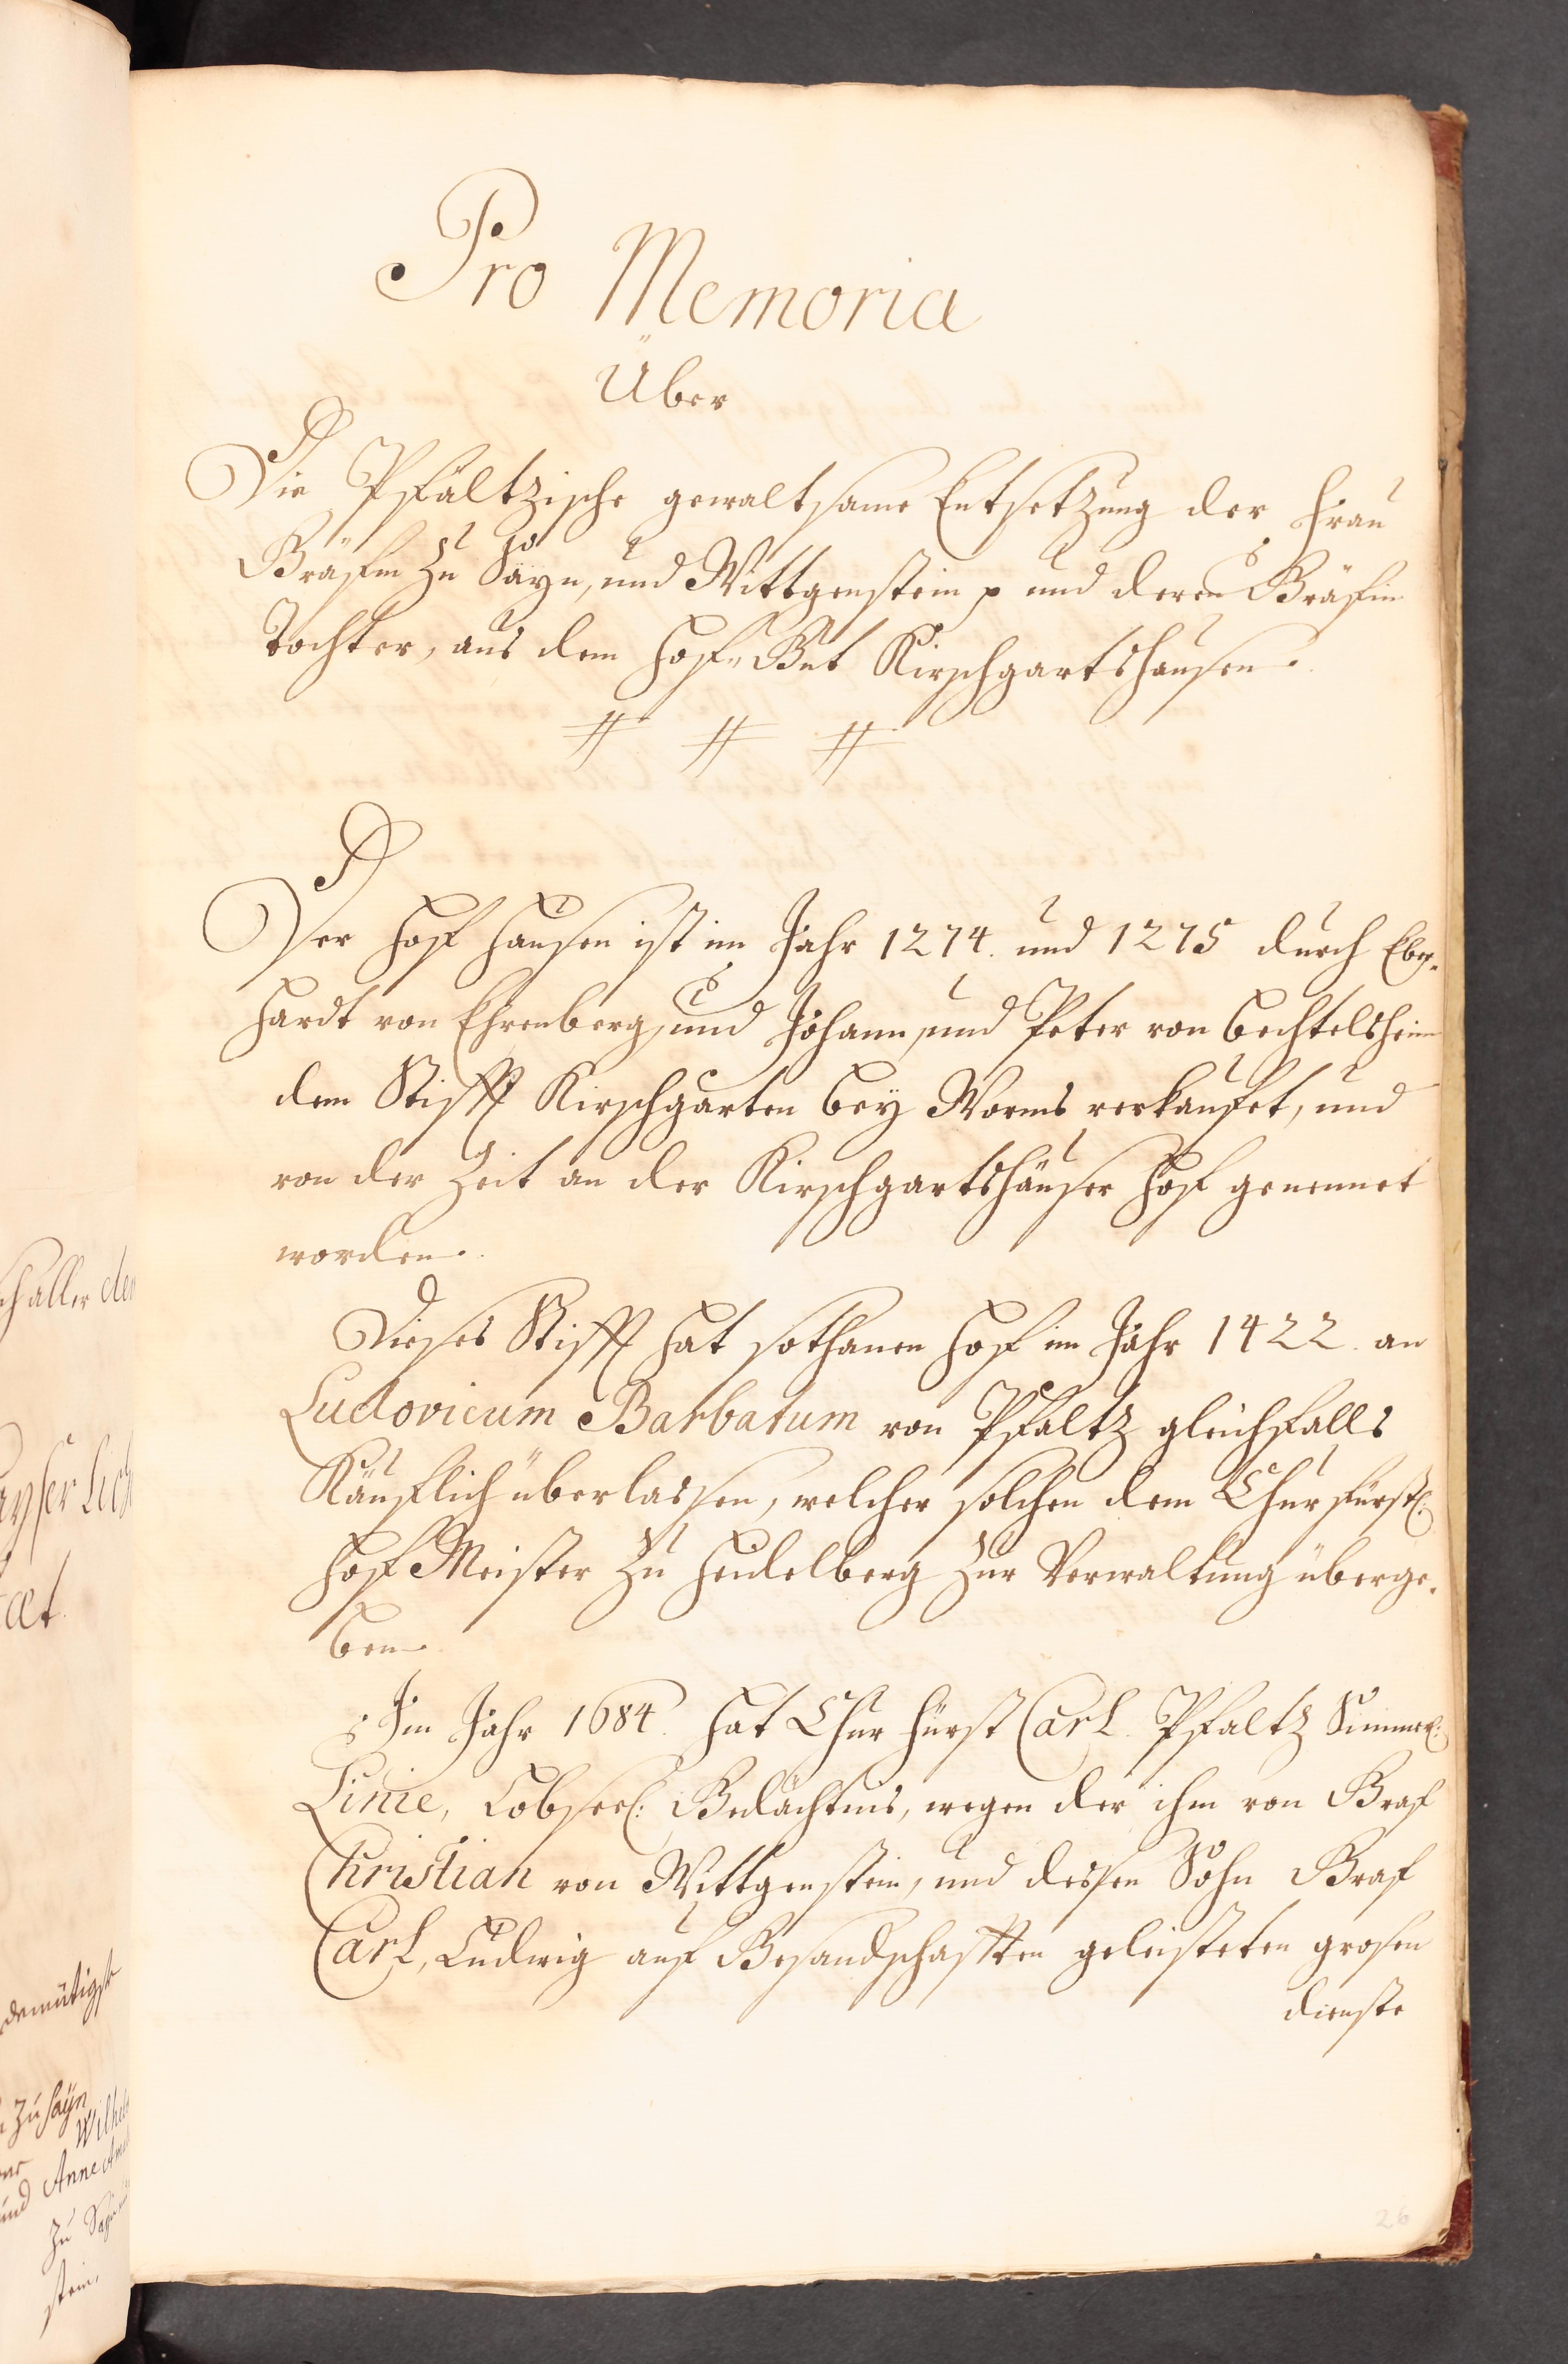 Pro Memoria
Über
Die Pfältzische gewaltsame Entsetzung der Frau
Gräfin zu Sayn, und Wittgenstein p und deren Gräfin
Tochter, aus dem Hof-Gut Kirschgartshausen.
# # #
Der Hof Hausen ist im Jahr 1274. und 1275 durch Eber-
hardt von Ehrenberg, und Johann, und Peter von Bechtelsheim
dem Stifft Kirschgarten bey Worms verkaufet, und
von der Zeit an der Kirschgartshäuser Hof genennet
worden.
Dieses Stifft hat sothanen Hof im Jahr 1422. an
Ludovicum Barbatum von Pfaltz gleichfalls
Käuflich überlassen, welcher solchen dem Churfürstl:
Hof Meister zu Heidelberg zur Verwaltung überge-
ben.
Im Jahr 1684. hat Chur Fürst Carl. Pfaltz Simmer:
Linie, Lobseel: Gedächtnis, wegen der ihm von Graf
Christian von Wittgenstein, und dessen Sohn Graf
Carl, Ludwig auf Gesandschafften geleisteten grosen
dienste
26
aller
demütigst
zu Sayn
und Anne
zu
stein,